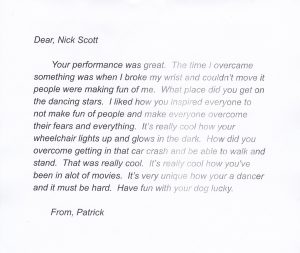 Dear, Nick Scott
Your performance was great. The time I overcame
something was when I broke my wrist and couldn't move it
people were making fun of me. What place did you get on
the dancing stars. I liked how you inspired everyone to
not make fun of people and make everyone overcome
their fears and everything. It's really cool how your
wheelchair lights up and glows in the dark. How did you
overcome getting in that car crash and be able to walk and
stand. That was really cool. It's really cool how you've
been in alot of movies. It's very unique how your a dancer
and it must be hard. Have fun with your dog lucky.
From, Patrick